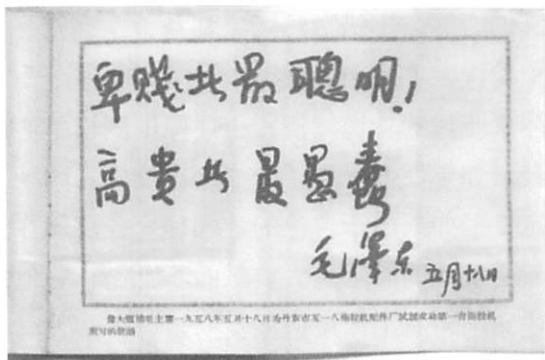 卑贱者最聪明！
高贵者最愚蠢
毛泽东 五月十八日
伟大领袖毛主席一九五八年五月十八日为丹东市五一八拖拉机配件厂试制成功第一台拖拉机
写的批语